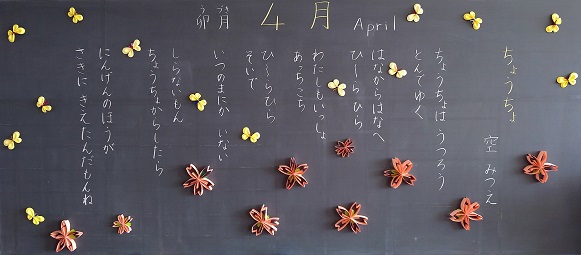 卯月 うづき 4月 April
ちょうちょ
空 みつえ
ちょうちょは うつろう
とんでゆく
はなからはなへ
ひ〜らひら
わたしもいっしょ
あっちこち
ひ〜らひら
そいで
いつのまにか いない
しらないもん
ちょうちょからしたら
にんげんのほうが
さきに きえたんだもんね